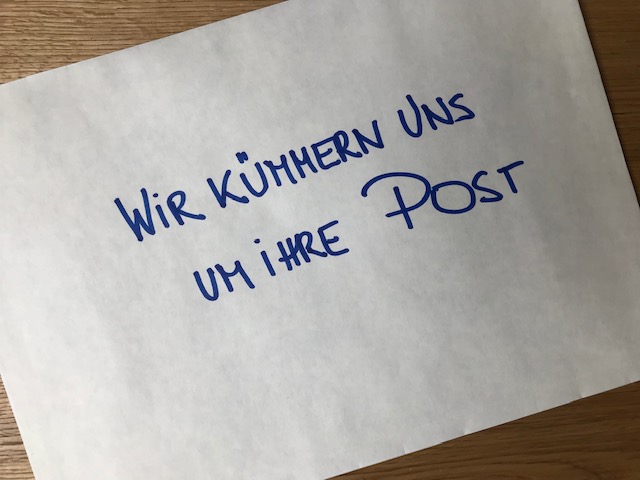 WiR KÜMMERN UNS
UM iHRE POST